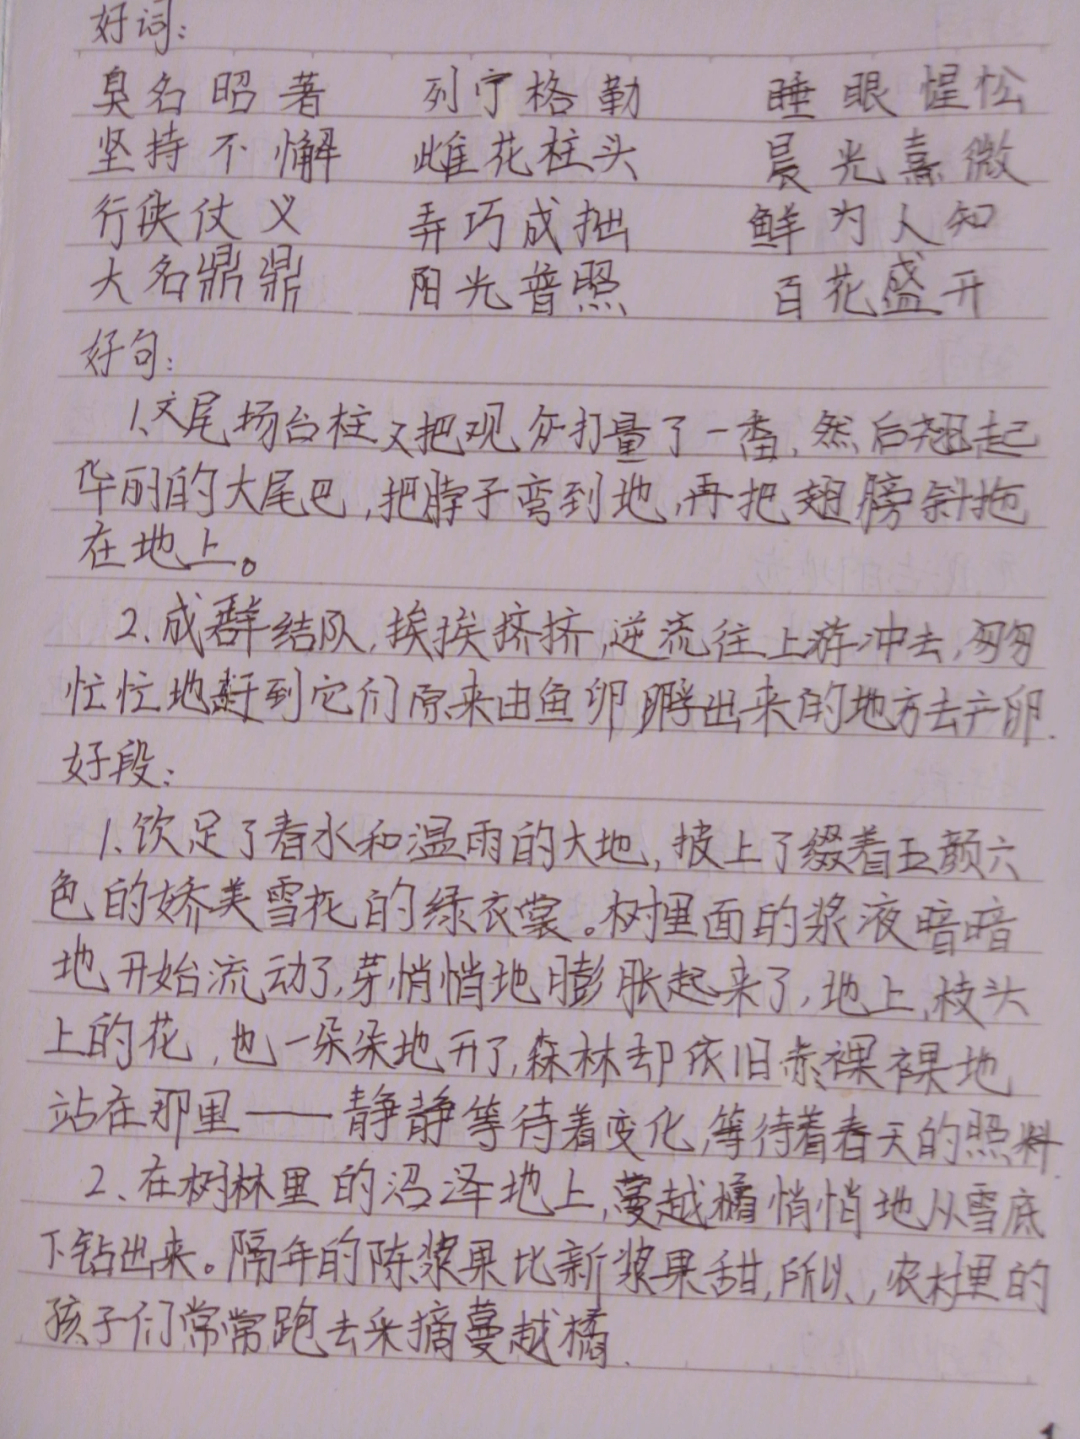 好词：
臭名昭著 列宁格勒 睡眼惺松
坚持不懈 雌花柱头 晨光熹微
行侠仗义 弄巧成拙 鲜为人知
大名鼎鼎 阳光普照 百花盛开
好句：
1、交尾场台柱又把观众打量了一番，然后翘起
华丽的大尾巴，把脖子弯到地，再把翅膀斜拖
在地上。
2、成群结队，挨挨挤挤，逆流往上游冲去，匆匆
忙忙地赶到它们原来由鱼卵孵出来的地方去产卵.
好段：
1、饮足了春水和温雨的大地，披上了缀着五颜六
色的娇美雪花的绿衣裳。树里面的浆液暗暗
地开始流动了，芽悄悄地膨胀起来了，地上，枝头
上的花，也一朵朵地开了，森林却依旧赤裸裸地
站在那里——静静等待着变化，等待着春天的照料.
2、在树林里的沼泽地上，蔓越橘悄悄地从雪底
下钻出来。隔年的陈浆果比新浆果甜，所以，农村里的
孩子们常常跑去采摘蔓越橘.
1